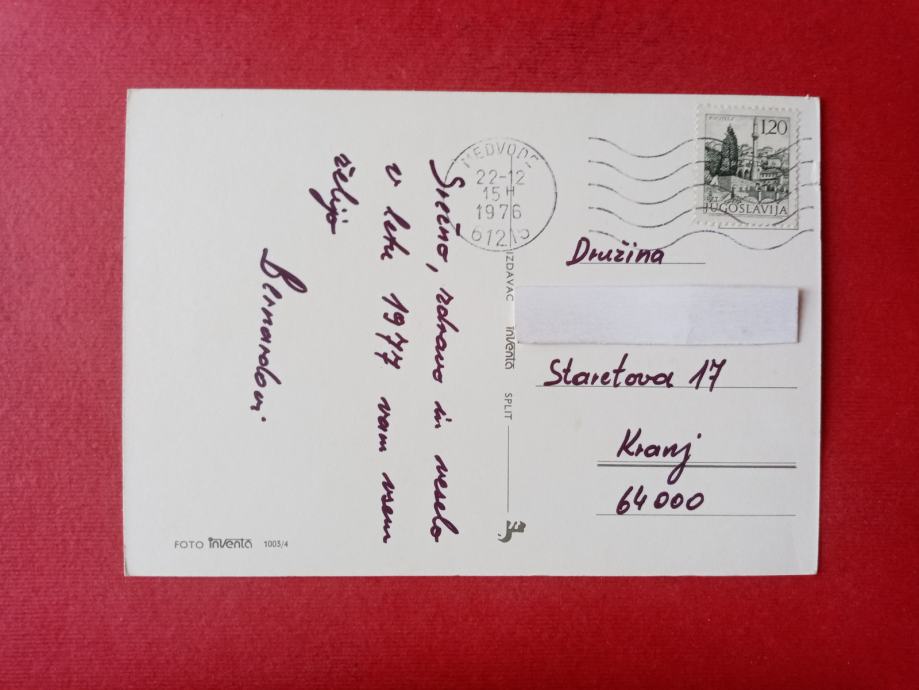 Srečno, zdravo in veselo
v letu 1977 vam vsem
želijo
Bernardovi.
FOTO inventa 1003/4
IZDAVAC inventa SPLIT
MEDVODE
22-12
15H
1976
61215
1.20
JUGOSLAVIJA
Družina
Staretova 17
Kranj
64000